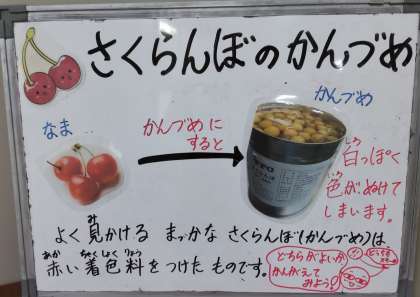 さくらんぼのかんづめ
なま
かんづめに
すると
かんづめ
白っぽく
色がぬけて
しまいます。
よく見かける まっかな さくらんぼ(かんづめ)は
赤い着色料をつけた ものです。
どちらがよいか
かんがえて
みよう